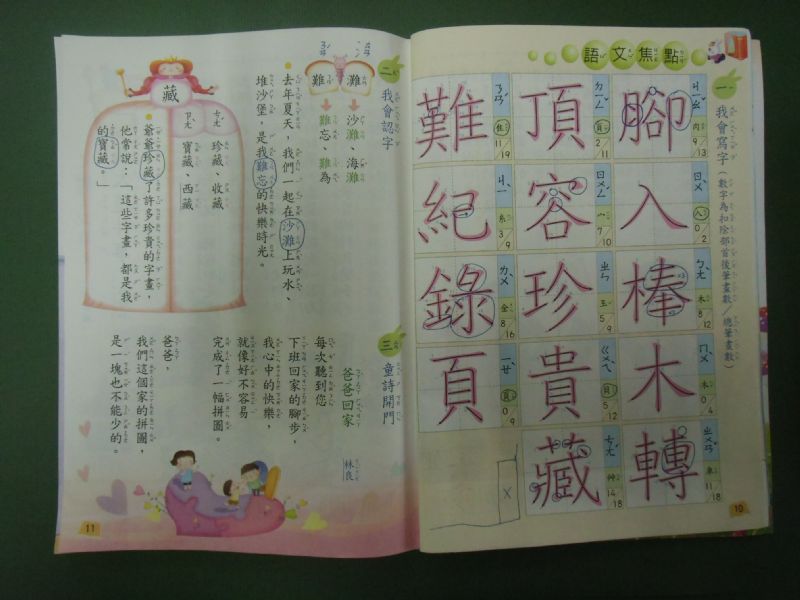 語文焦點
一
我會寫字（數字為扣除部首後筆畫數／總筆畫數）
腳
肉
9/13
入
入
0/2
棒
木
8/12
木
木
0/4
轉
車
11/18
頂
頁
2/11
容
宀
7/10
珍
玉
5/9
貴
貝
5/12
藏
艸
14/18
難
隹
11/19
紀
糸
3/9
錄
金
8/16
頁
頁
0/9
10
二
我會認字
灘
沙灘、海灘
難
難忘、難為
去年夏天，我們一起在沙灘上玩水、
堆沙堡，是我難忘的快樂時光。
藏
ㄘㄤ
珍藏、收藏
ㄗㄤ
寶藏、西藏
爺爺珍藏了許多珍貴的字畫，
他常說：「這些字畫，都是我
的寶藏。」
三
童詩開門
爸爸回家
林良
每次聽到您
下班回家的腳步，
我心中的快樂，
就像好不容易
完成了一幅拼圖。
爸爸，
我們這個家的拼圖，
是一塊也不能少的。
11